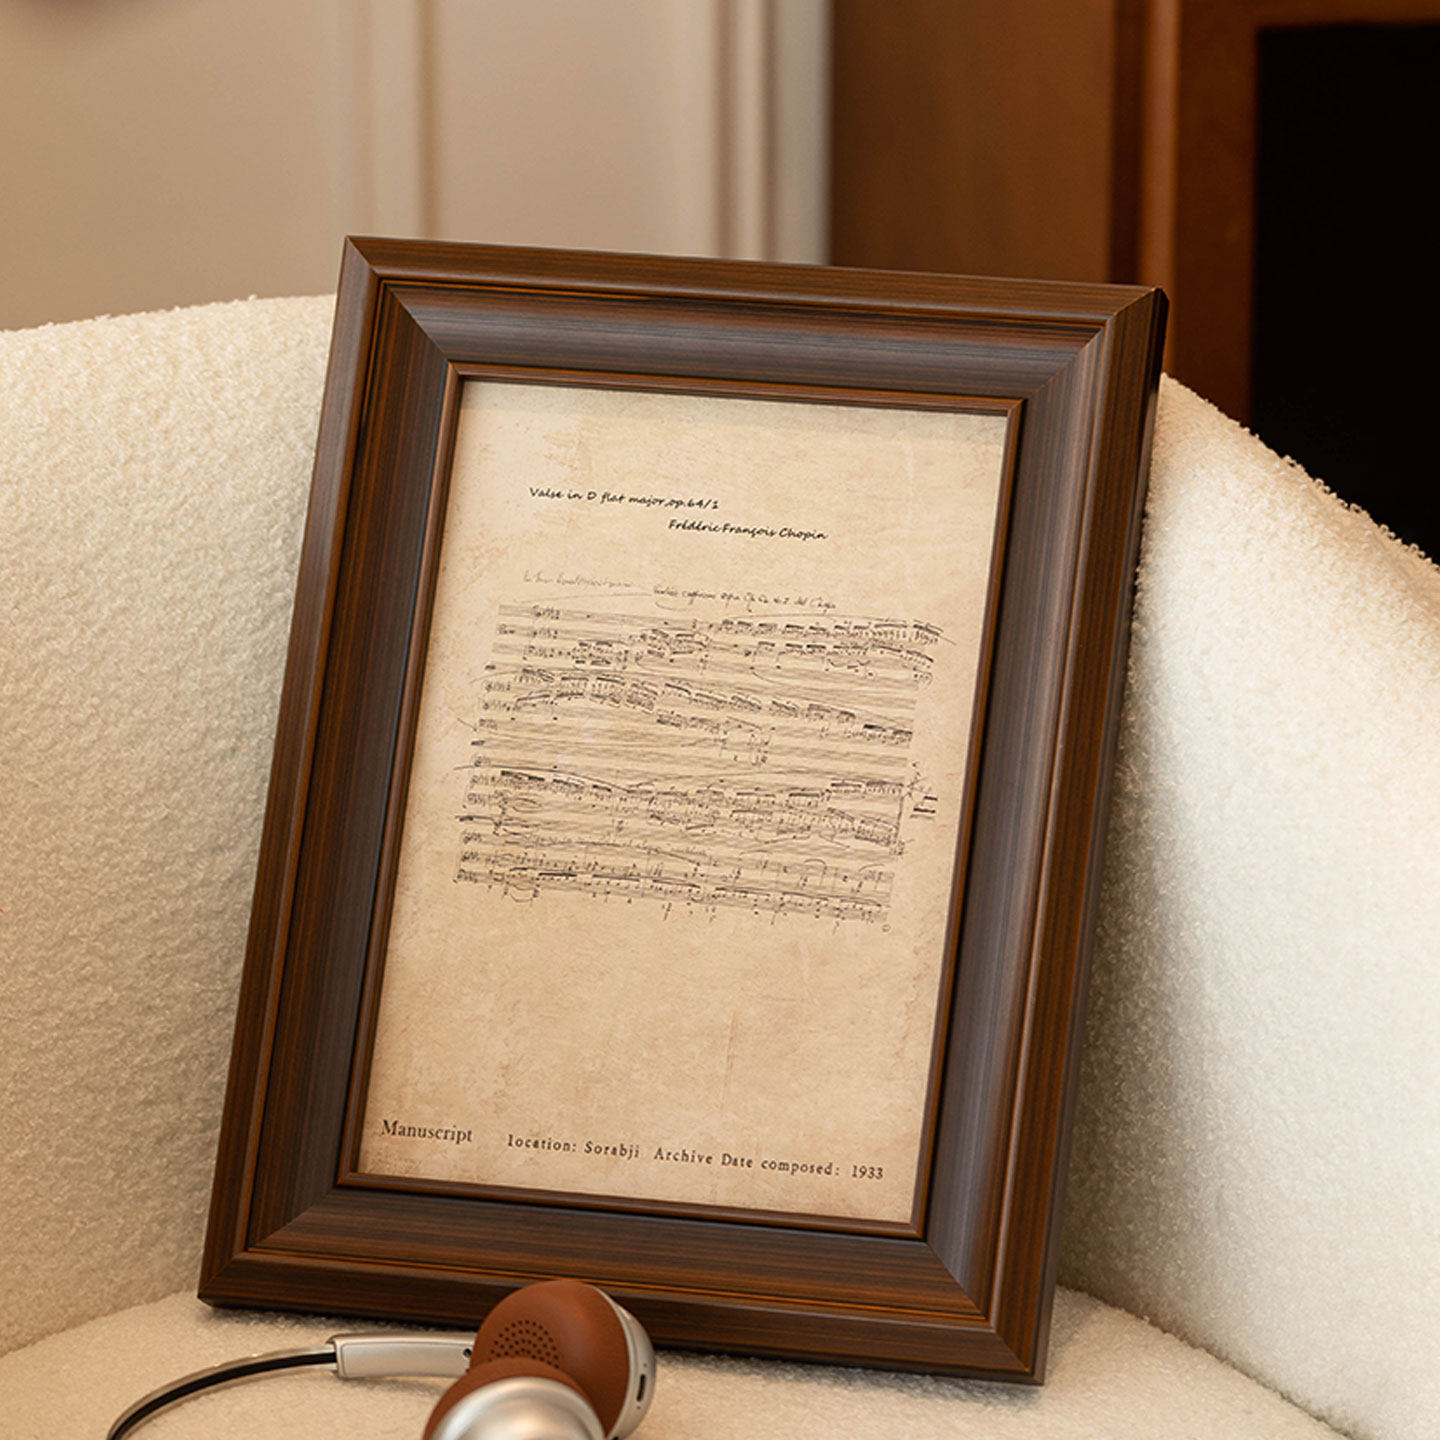 Valse in D flat major,op.64/1
Frédéric François Chopin
Manuscript location: Sorabji Archive Date composed: 1933